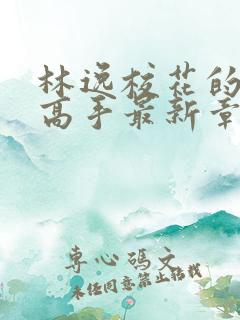 林逸校花的
高手最新章
专心码文
未经同意禁止转载